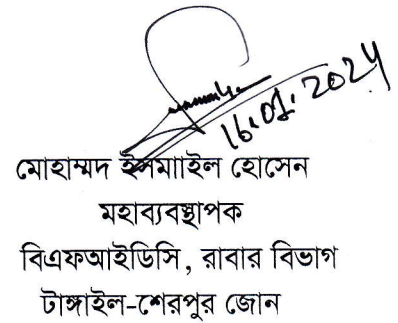 16.01.2024
মোহাম্মদ ইসমাাইল হোসেন
মহাব্যবস্থাপক
বিএফআইডিসি, রাবার বিভাগ
টাঙ্গাইল-শেরপুর জোন